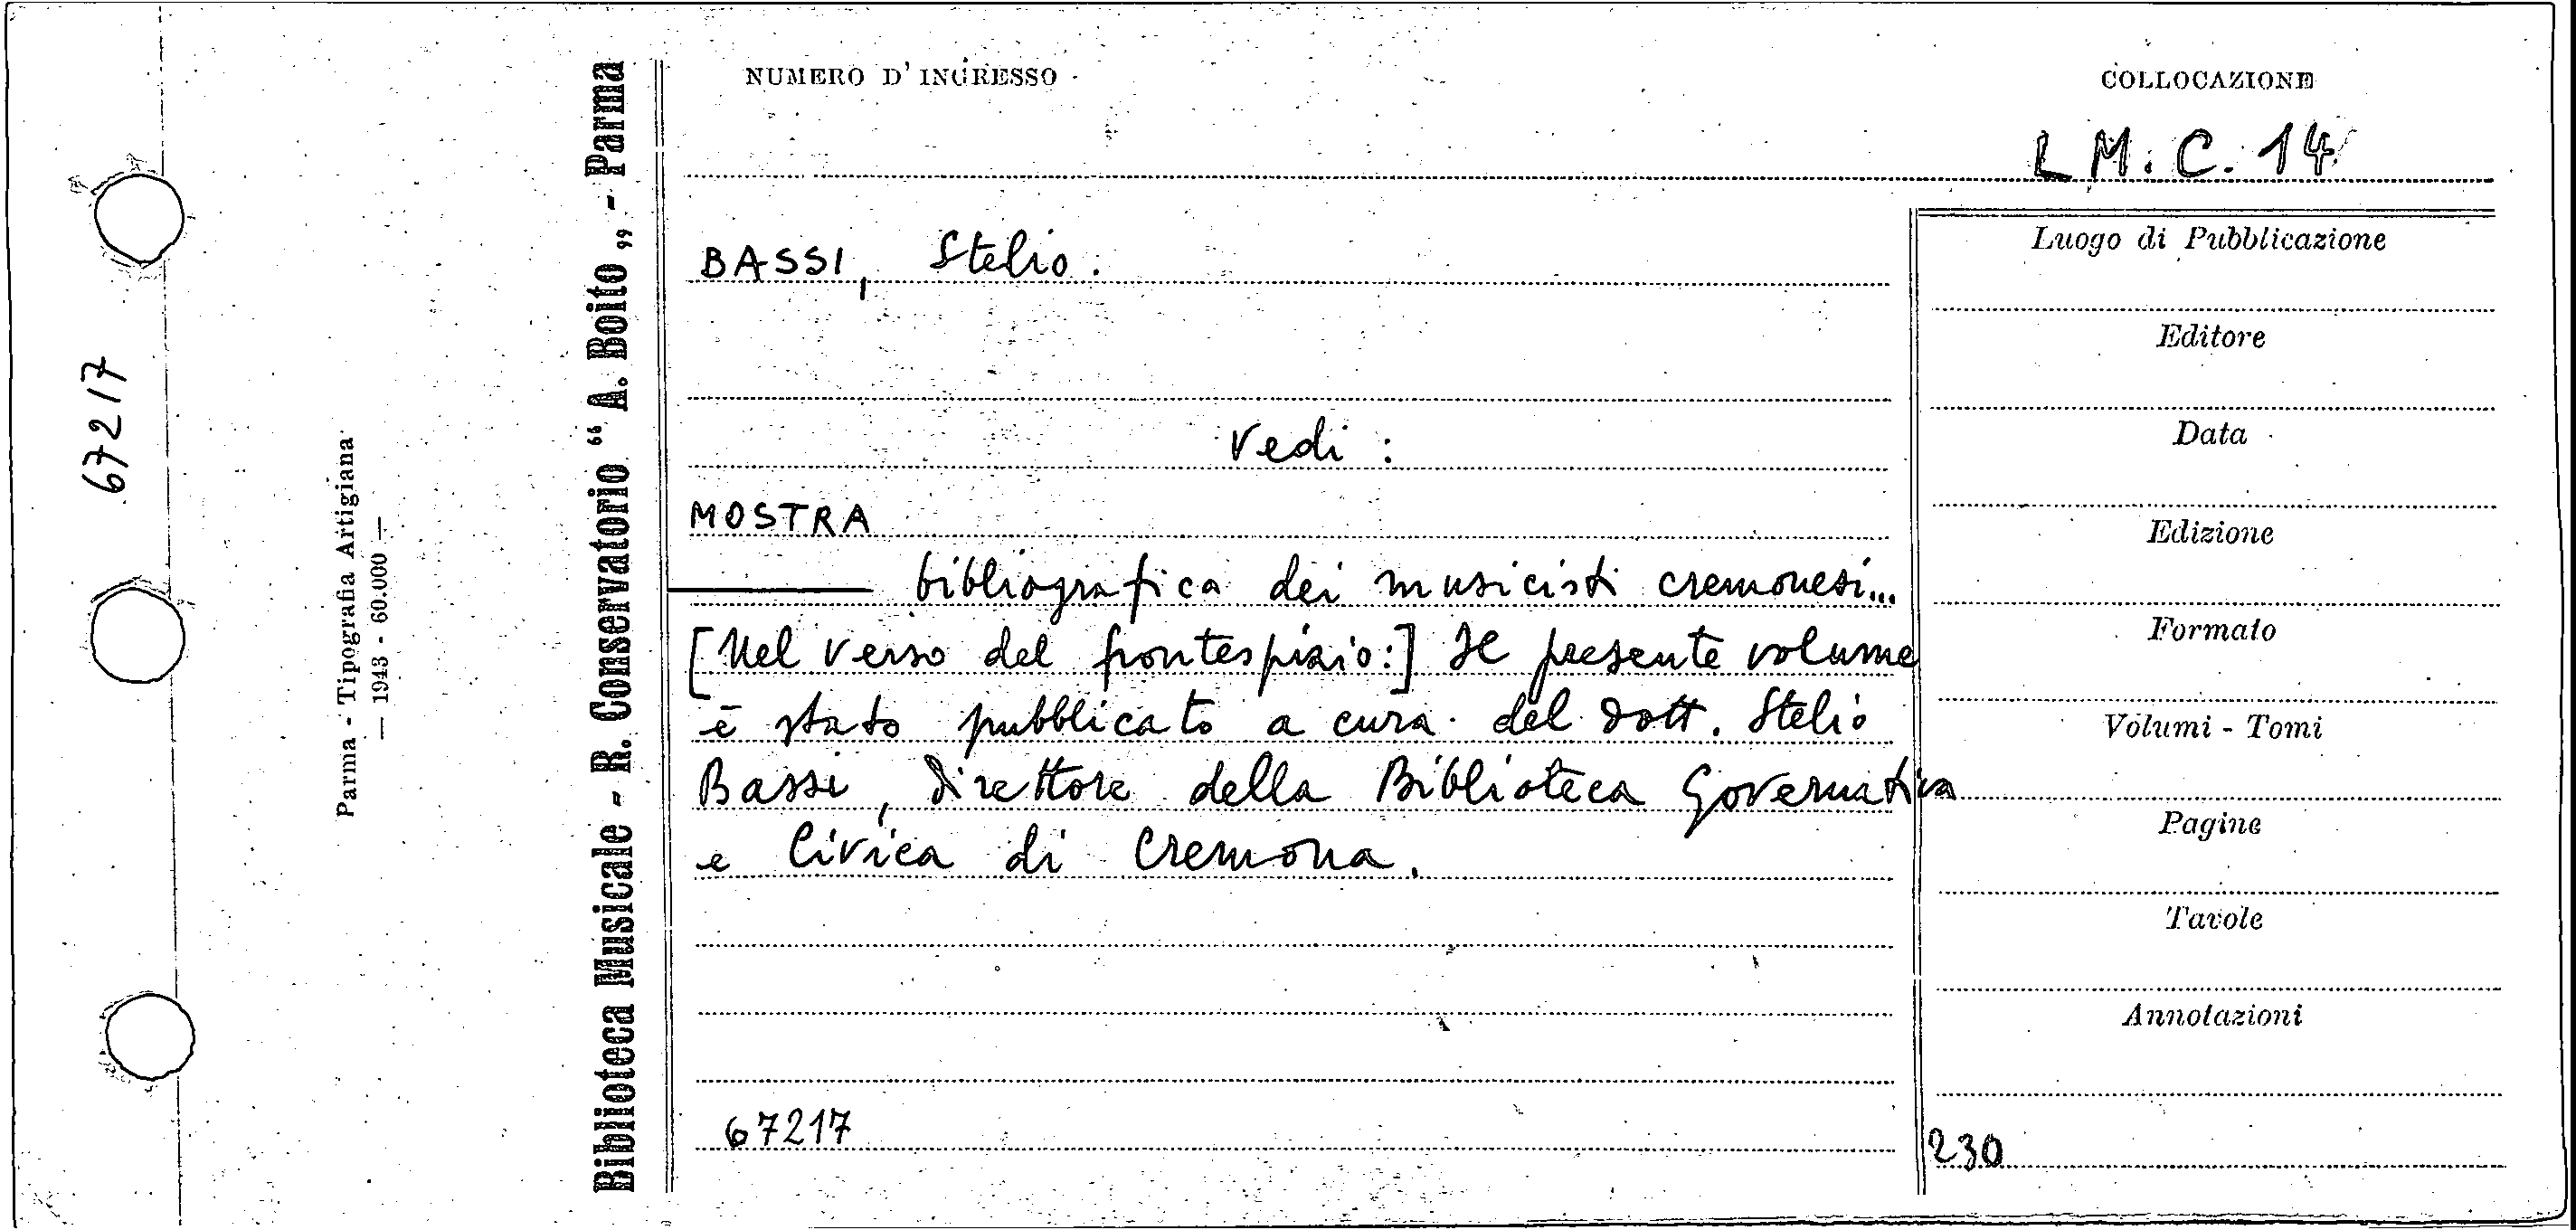 67217
Parma - Tipografia Artigiana
— 1943 - 60.000 —
Biblioteca Musicale - R. Conservatorio “ A. Boito „ - Parma
NUMERO D' INGRESSO
COLLOCAZIONE
L M. C. 14
BASSI, Stelio.
Vedi :
MOSTRA
——— bibliografica dei musicisti cremonesi...
[Nel verso del frontespizio:] Il presente volume
è stato pubblicato a cura del dott. Stelio
Bassi, Direttore della Biblioteca Governativa
e Civica di Cremona.
67217
Luogo di Pubblicazione
Editore
Data
Edizione
Formato
Volumi - Tomi
Pagine
Tavole
Annotazioni
230